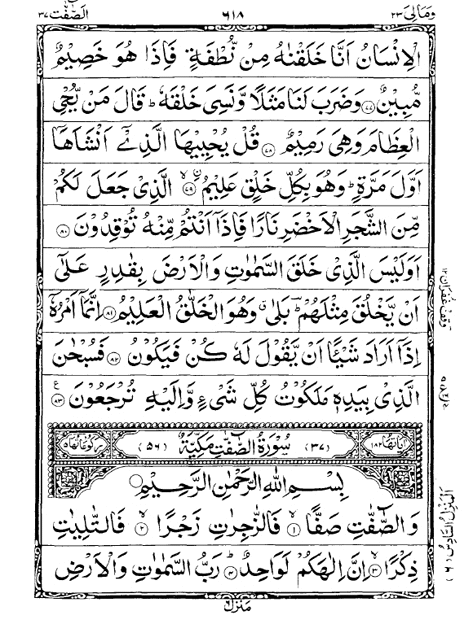 ومالی ٢٣ ٦١٨ الصّٰفّٰت ٣٧
الْاِنْسَانُ اَنَّا خَلَقْنٰهُ مِنْ نُّطْفَةٍ فَاِذَا هُوَ خَصِيْمٌ
مُّبِيْنٌ ٧٧ وَضَرَبَ لَنَا مَثَلًا وَّنَسِيَ خَلْقَهٗ ؕ قَالَ مَنْ يُّحْيِ
الْعِظَامَ وَهِيَ رَمِيْمٌ ٧٨ قُلْ يُحْيِيْهَا الَّذِيْۤ اَنْشَاَهَاۤ
اَوَّلَ مَرَّةٍ ؕ وَهُوَ بِكُلِّ خَلْقٍ عَلِيْمُۙ ٧٩ الَّذِيْ جَعَلَ لَكُمْ
مِّنَ الشَّجَرِ الْاَخْضَرِ نَارًا فَاِذَاۤ اَنْتُمْ مِّنْهُ تُوْقِدُوْنَ ٨٠
اَوَلَيْسَ الَّذِيْ خَلَقَ السَّمٰوٰتِ وَالْاَرْضَ بِقٰدِرٍ عَلٰۤى
اَنْ يَّخْلُقَ مِثْلَهُمْ ؕ بَلٰى ۗ وَهُوَ الْخَلّٰقُ الْعَلِيْمُ ٨١ اِنَّمَاۤ اَمْرُهٗۤ
اِذَاۤ اَرَادَ شَيْـًٔا اَنْ يَّقُوْلَ لَهٗ كُنْ فَيَكُوْنُ ٨٢ فَسُبْحٰنَ
الَّذِيْ بِيَدِهٖ مَلَكُوْتُ كُلِّ شَيْءٍ وَّاِلَيْهِ تُرْجَعُوْنَ ٨٣
اٰيَاتُهَا ١٨٢ (٣٧) سُوْرَةُ الصّٰفّٰتِ مَكِّيَّةٌ (٥٦) رُكُوْعَاتُهَا ٥
بِسْمِ اللهِ الرَّحْمٰنِ الرَّحِيْمِ
وَالصّٰٓفّٰتِ صَفًّا ١ فَالزّٰجِرٰتِ زَجْرًا ٢ فَالتّٰلِيٰتِ
ذِكْرًا ٣ اِنَّ اِلٰهَكُمْ لَوَاحِدٌ ٤ رَبُّ السَّمٰوٰتِ وَالْاَرْضِ
مَنْزِل
المنزل السادس (٦)